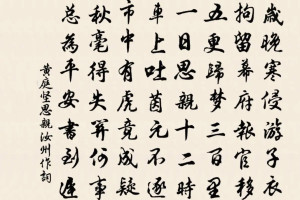 歲晚寒侵游子衣
拘留幕府報官移
五更歸夢三百里
一日思親十二時
車上吐茵元不逐
市中有虎竟成疑
秋毫得失關何事
總為平安書到遲
黄庭坚思親汝州作詞